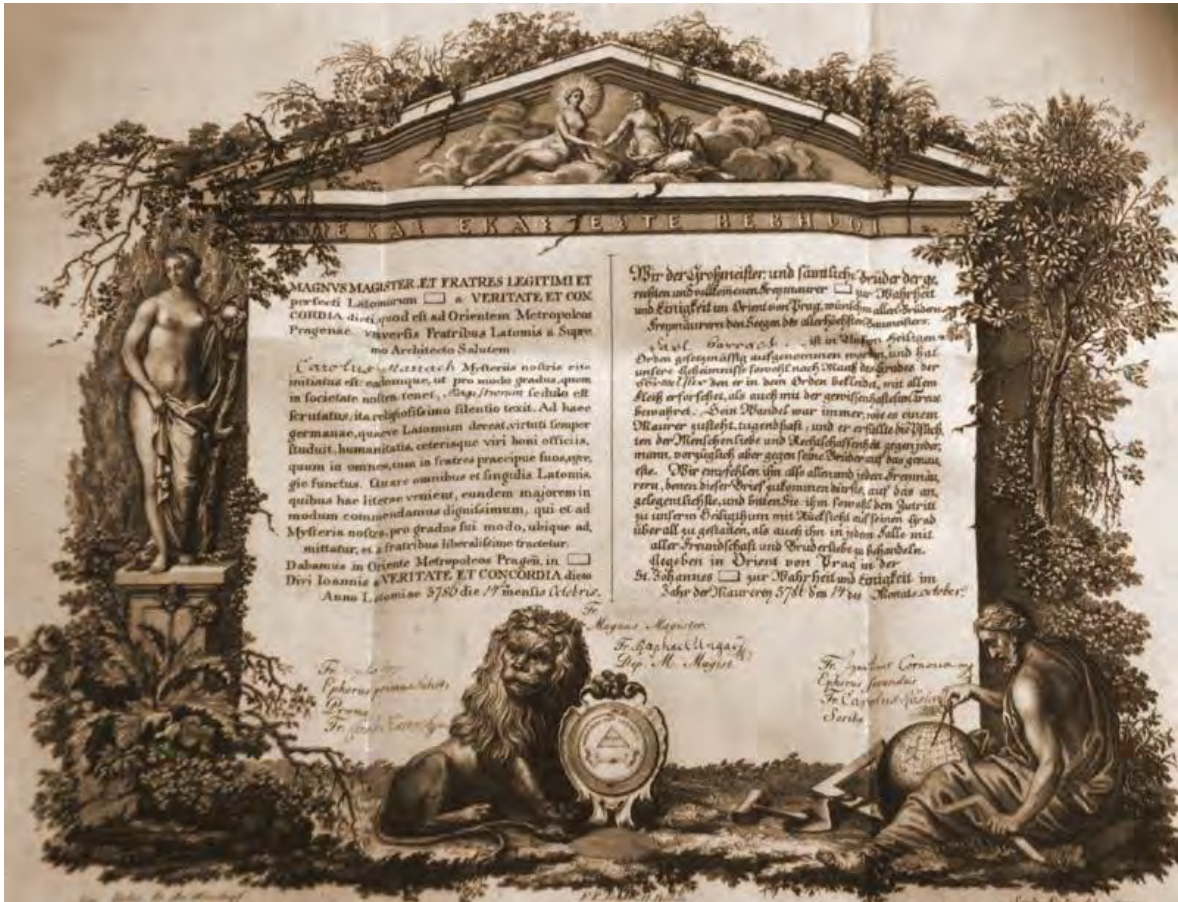 EKAΣ EKAΣ EΣTE BEBHΛOI
MAGNVS MAGISTER ET FRATRES LEGITIMI ET
perfecti Latomorum a VERITATE ET CON
CORDIA dicti, quod est ad Orientem Metropoleos
Pragenae, vniversis Fratribus Latomis a Supre
mo Architecto Salutem
Carolus Mysteriis nostris rite
initiatus est: eademque, ut pro modo gradus, quem
in societate nostra tenet, Magistrorum sedulo est
scrutatus, ita religiosissimo silentio texit. Ad haec
germanae, quaeve Latomum deceat, virtuti semper
studuit, humanitatis, ceterisque viri boni officiis,
quum in omnes, tum in fratres praecipue suos, egre,
gie functus. Quare omnibus et singulis Latomis,
quibus hae literae venient, eundem majorem in
modum commendamus dignissimum, qui et ad
Mysteria nostra, pro gradus sui modo, ubique ad,
mittatur, et a fratribus liberalissime tractetur.
Dabamus in Oriente Metropoleos Pragen. in
Divi Ioannis a VERITATE ET CONCORDIA dicto
Anno Latomiae 5786 die 14 mensis Octobris.
Wir der Großmeister, und sämtliche Brüder der ge,
rechten und vollkomenen Freymaurer zur Wahrheit
und Einigkeit im Orient von Prag, wünschen allen Brüdern
Freymaurern den Seegen des allerhöchsten Baumeisters.
ist in Unsern heiligen
Orden gesetzmässig aufgenommen worden, und hat
unsere Geheimnisse sowohl nach Maaß des Grades der
den er in dem Orden bekleidet, mit allem
Fleiß erforschet, als auch mit der gewissenhaftesten Treue
bewahret. Sein Wandel war immer, wie es einem
Maurer zusteht, tugendhaft, und er erfüllte die Pflich
ten der Menschenliebe und Rechtschaffenheit gegen jeder,
mann, vorzüglich aber gegen seine Brüder auf das genau,
este. Wir empfehlen ihn also allen und jeden Freymau,
rern, denen dieser Brief zukommen dürfte, auf das an,
gelegentlichste, und bitten Sie, ihm sowohl den Zutritt
zu unserm Heiligthum mit Rücksicht auf seinen Grad
überall zu gestatten, als auch ihn in jedem Falle mit
aller Freundschaft und Bruderliebe zu behandeln.
Gegeben in Orient von Prag in der
St. Johannes zur Wahrheit und Einigkeit im
Jahr der Maurerey 5786 den 14 des Monats October.
Fr.
Magnus Magister.
Fr. Raphael Ungar
Dep. M. Magist.
Fr.
Ephorus primus
Fr.
Fr. Cornova
Ephorus secundus
Fr. Carolus